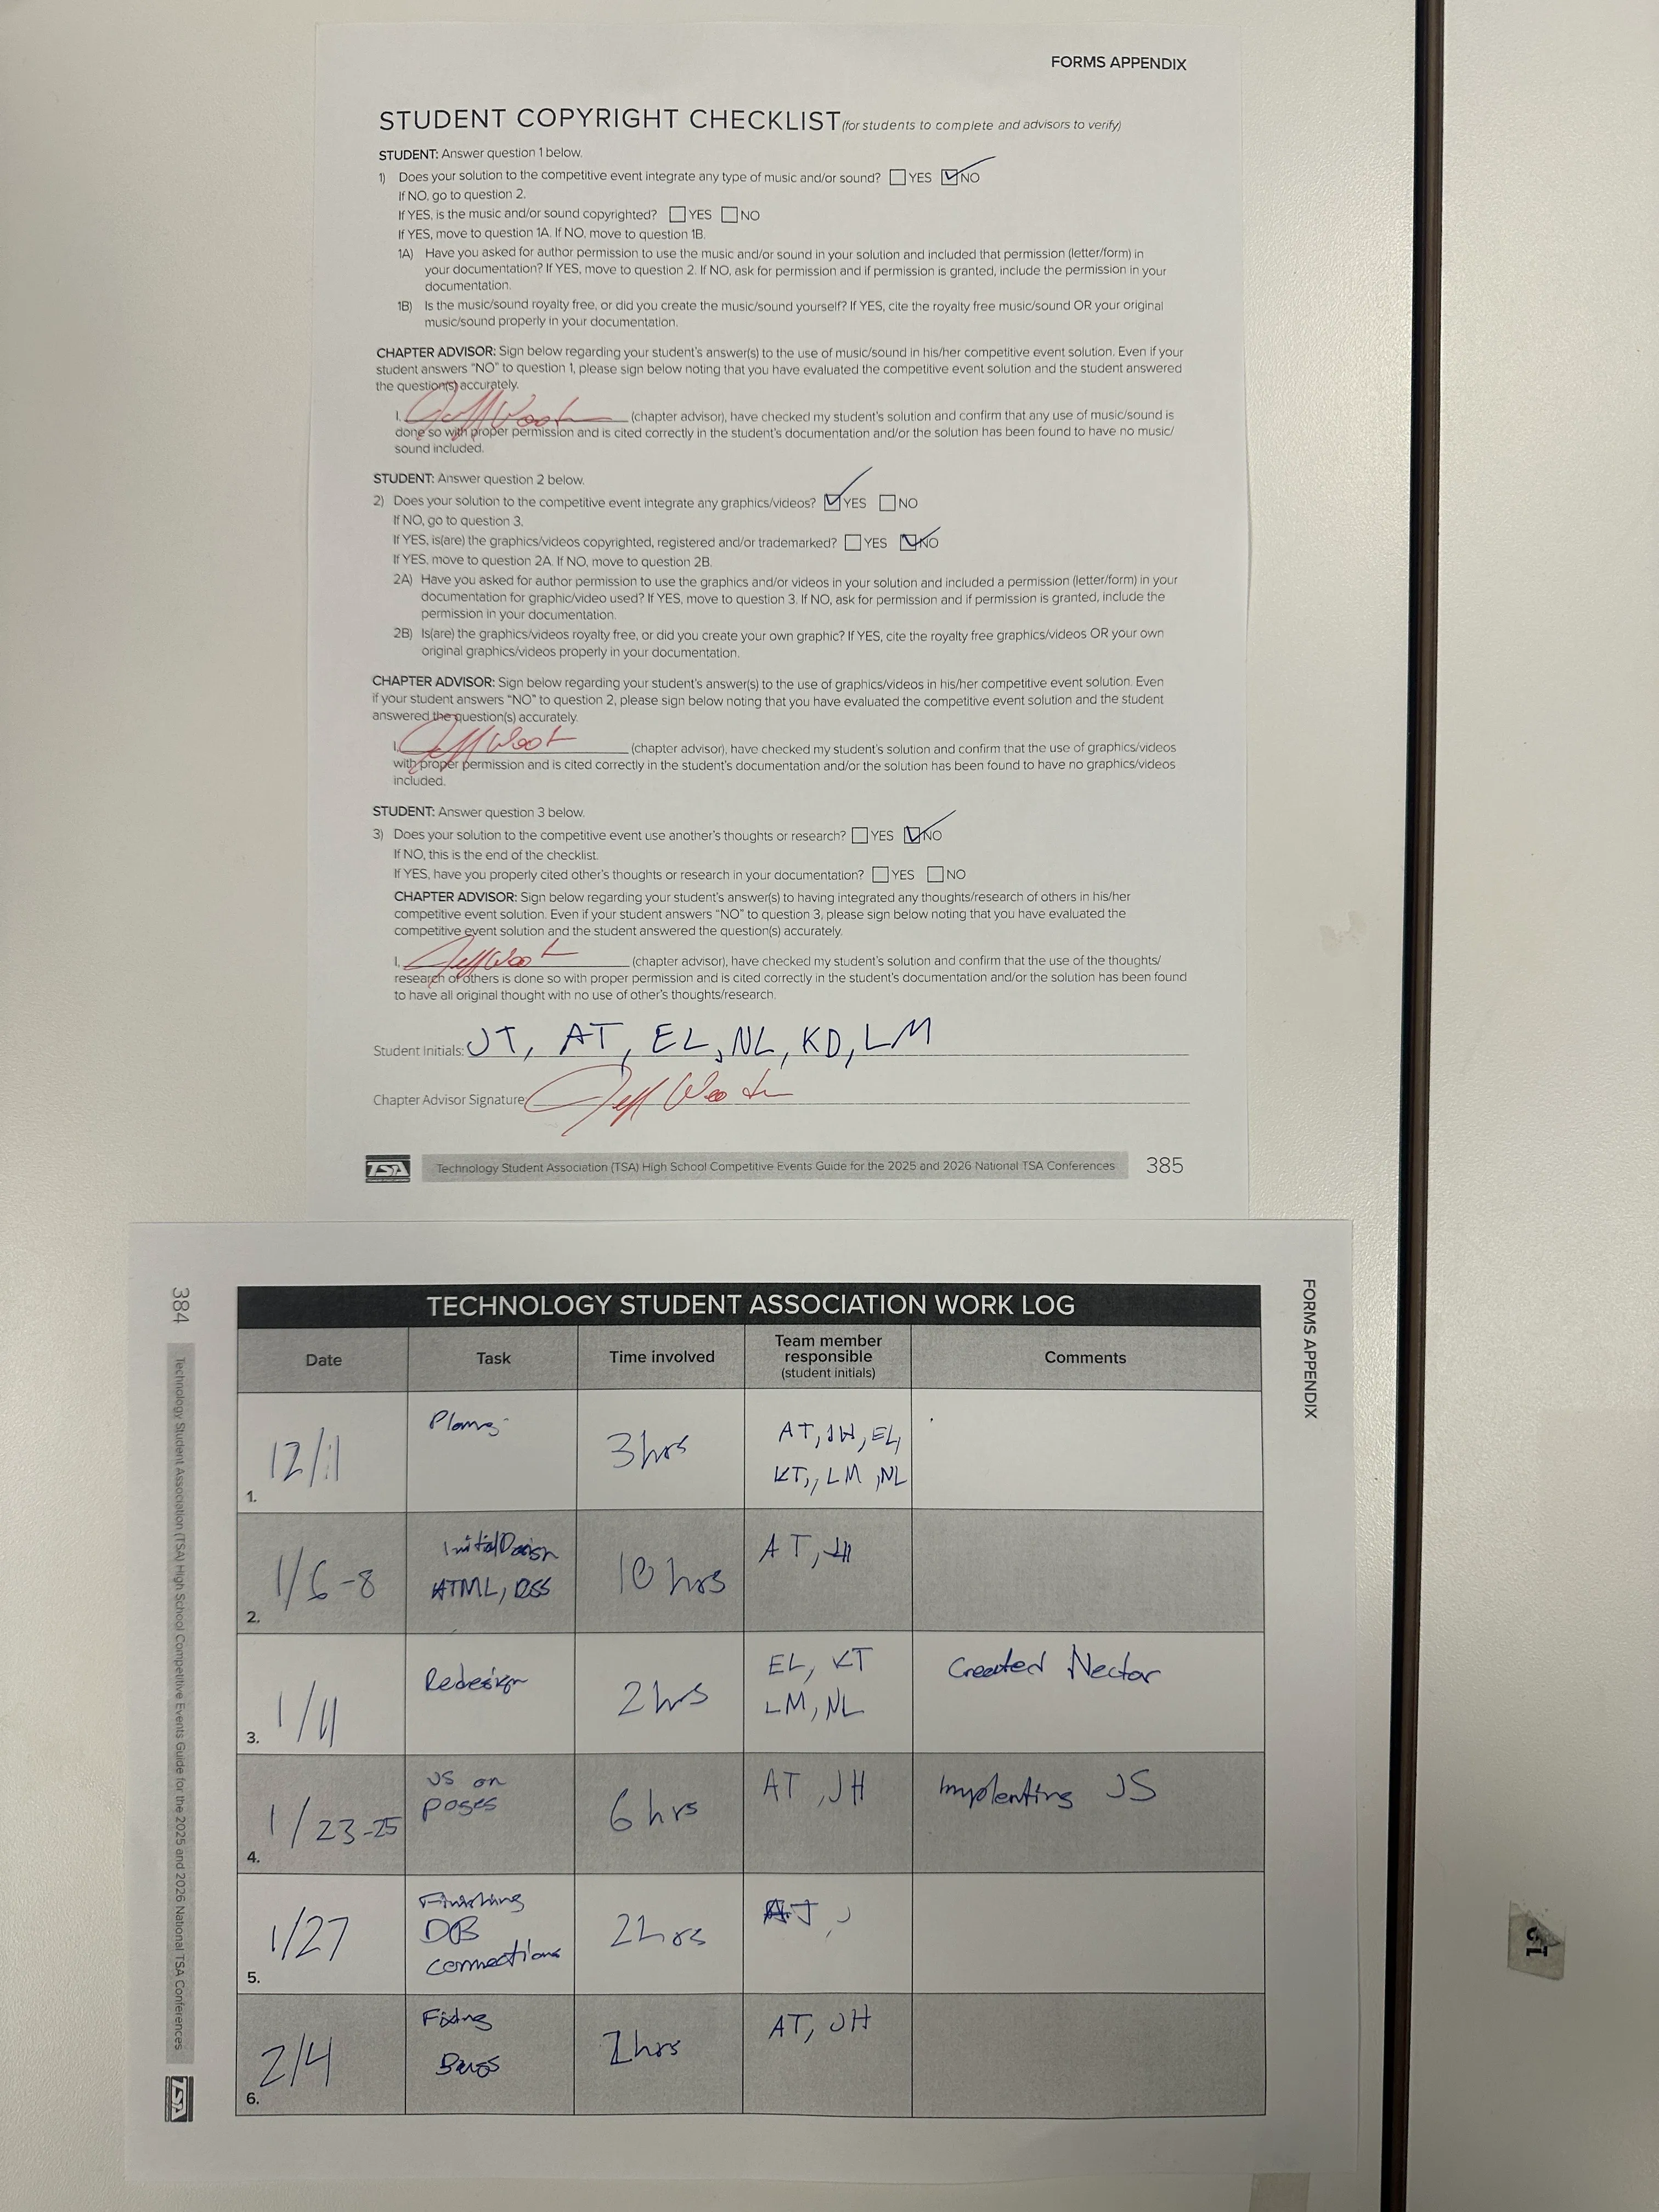 FORMS APPENDIX
STUDENT COPYRIGHT CHECKLIST (for students to complete and advisors to verify)
STUDENT: Answer question 1 below.
1) Does your solution to the competitive event integrate any type of music and/or sound? YES NO
If NO, go to question 2.
If YES, is the music and/or sound copyrighted? YES NO
If YES, move to question 1A. If NO, move to question 1B.
1A) Have you asked for author permission to use the music and/or sound in your solution and included that permission (letter/form) in
your documentation? If YES, move to question 2. If NO, ask for permission and if permission is granted, include the permission in your
documentation.
1B) Is the music/sound royalty free, or did you create the music/sound yourself? If YES, cite the royalty free music/sound OR your original
music/sound properly in your documentation.
CHAPTER ADVISOR: Sign below regarding your student's answer(s) to the use of music/sound in his/her competitive event solution. Even if your
student answers "NO" to question 1, please sign below noting that you have evaluated the competitive event solution and the student answered
the question(s) accurately.
I, (chapter advisor), have checked my student's solution and confirm that any use of music/sound is
done so with proper permission and is cited correctly in the student's documentation and/or the solution has been found to have no music/
sound included.
STUDENT: Answer question 2 below.
2) Does your solution to the competitive event integrate any graphics/videos? YES NO
If NO, go to question 3.
If YES, is(are) the graphics/videos copyrighted, registered and/or trademarked? YES NO
If YES, move to question 2A. If NO, move to question 2B.
2A) Have you asked for author permission to use the graphics and/or videos in your solution and included a permission (letter/form) in your
documentation for graphic/video used? If YES, move to question 3. If NO, ask for permission and if permission is granted, include the
permission in your documentation.
2B) Is(are) the graphics/videos royalty free, or did you create your own graphic? If YES, cite the royalty free graphics/videos OR your own
original graphics/videos properly in your documentation.
CHAPTER ADVISOR: Sign below regarding your student's answer(s) to the use of graphics/videos in his/her competitive event solution. Even
if your student answers "NO" to question 2, please sign below noting that you have evaluated the competitive event solution and the student
answered the question(s) accurately.
I, (chapter advisor), have checked my student's solution and confirm that the use of graphics/videos
with proper permission and is cited correctly in the student's documentation and/or the solution has been found to have no graphics/videos
included.
STUDENT: Answer question 3 below.
3) Does your solution to the competitive event use another's thoughts or research? YES NO
If NO, this is the end of the checklist.
If YES, have you properly cited other's thoughts or research in your documentation? YES NO
CHAPTER ADVISOR: Sign below regarding your student's answer(s) to having integrated any thoughts/research of others in his/her
competitive event solution. Even if your student answers "NO" to question 3, please sign below noting that you have evaluated the
competitive event solution and the student answered the question(s) accurately.
I, (chapter advisor), have checked my student's solution and confirm that the use of the thoughts/
research of others is done so with proper permission and is cited correctly in the student's documentation and/or the solution has been found
to have all original thought with no use of other's thoughts/research.
Student Initials: JT, AT, EL, NL, KD, LM
Chapter Advisor Signature
TSA Technology Student Association (TSA) High School Competitive Events Guide for the 2025 and 2026 National TSA Conferences 385
FORMS APPENDIX
TECHNOLOGY STUDENT ASSOCIATION WORK LOG
Date Task Time involved Team member responsible (student initials) Comments
1. 12/1 3hrs AT, JH, EL,
KT, LM, NL
2. 1/6-8 Initial Design 10 hrs AT, JH
HTML, CSS
3. 1/11 Redesign 2hrs EL, KT Created Nectar
LM, NL
4. 1/23-25 JS on 6 hrs AT, JH Implenting JS
pages
5. 1/27 Finishing 2hrs
DB
connections
6. 2/4 Fixing AT, JH
Bugs
384 Technology Student Association (TSA) High School Competitive Events Guide for the 2025 and 2026 National TSA Conferences TSA